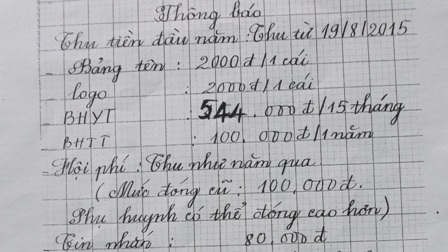 Thông báo
Thu tiền đầu năm : Thu từ 19/8/2015
- Bảng tên : 2000đ/1 cái
logo : 2000đ/1 cái
- BHYT : 544.000đ/15 tháng
- BHTT : 100.000đ/1 năm
- Hội phí : Thu như năm qua
( Mức đóng cũ : 100.000đ.
Phụ huynh có thể đóng cao hơn)
- Tin nhắn : 80.000đ